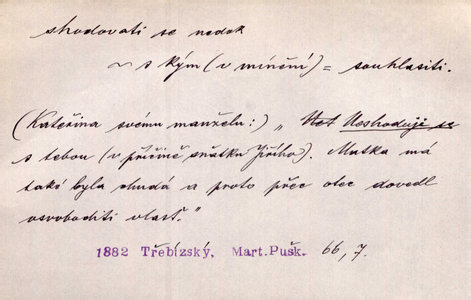 shodovati se nedok
~ s kým (v mínění) = souhlasiti.
(Kateřina svému manželu:) „ Neshoduje se
s tebou (v příčině sňatku Jiřího). Matka má
také byla chudá a proto přec otec dovedl
osvoboditi vlasť."
1882 Třebízský, Mart. Pušk. 66, 7.